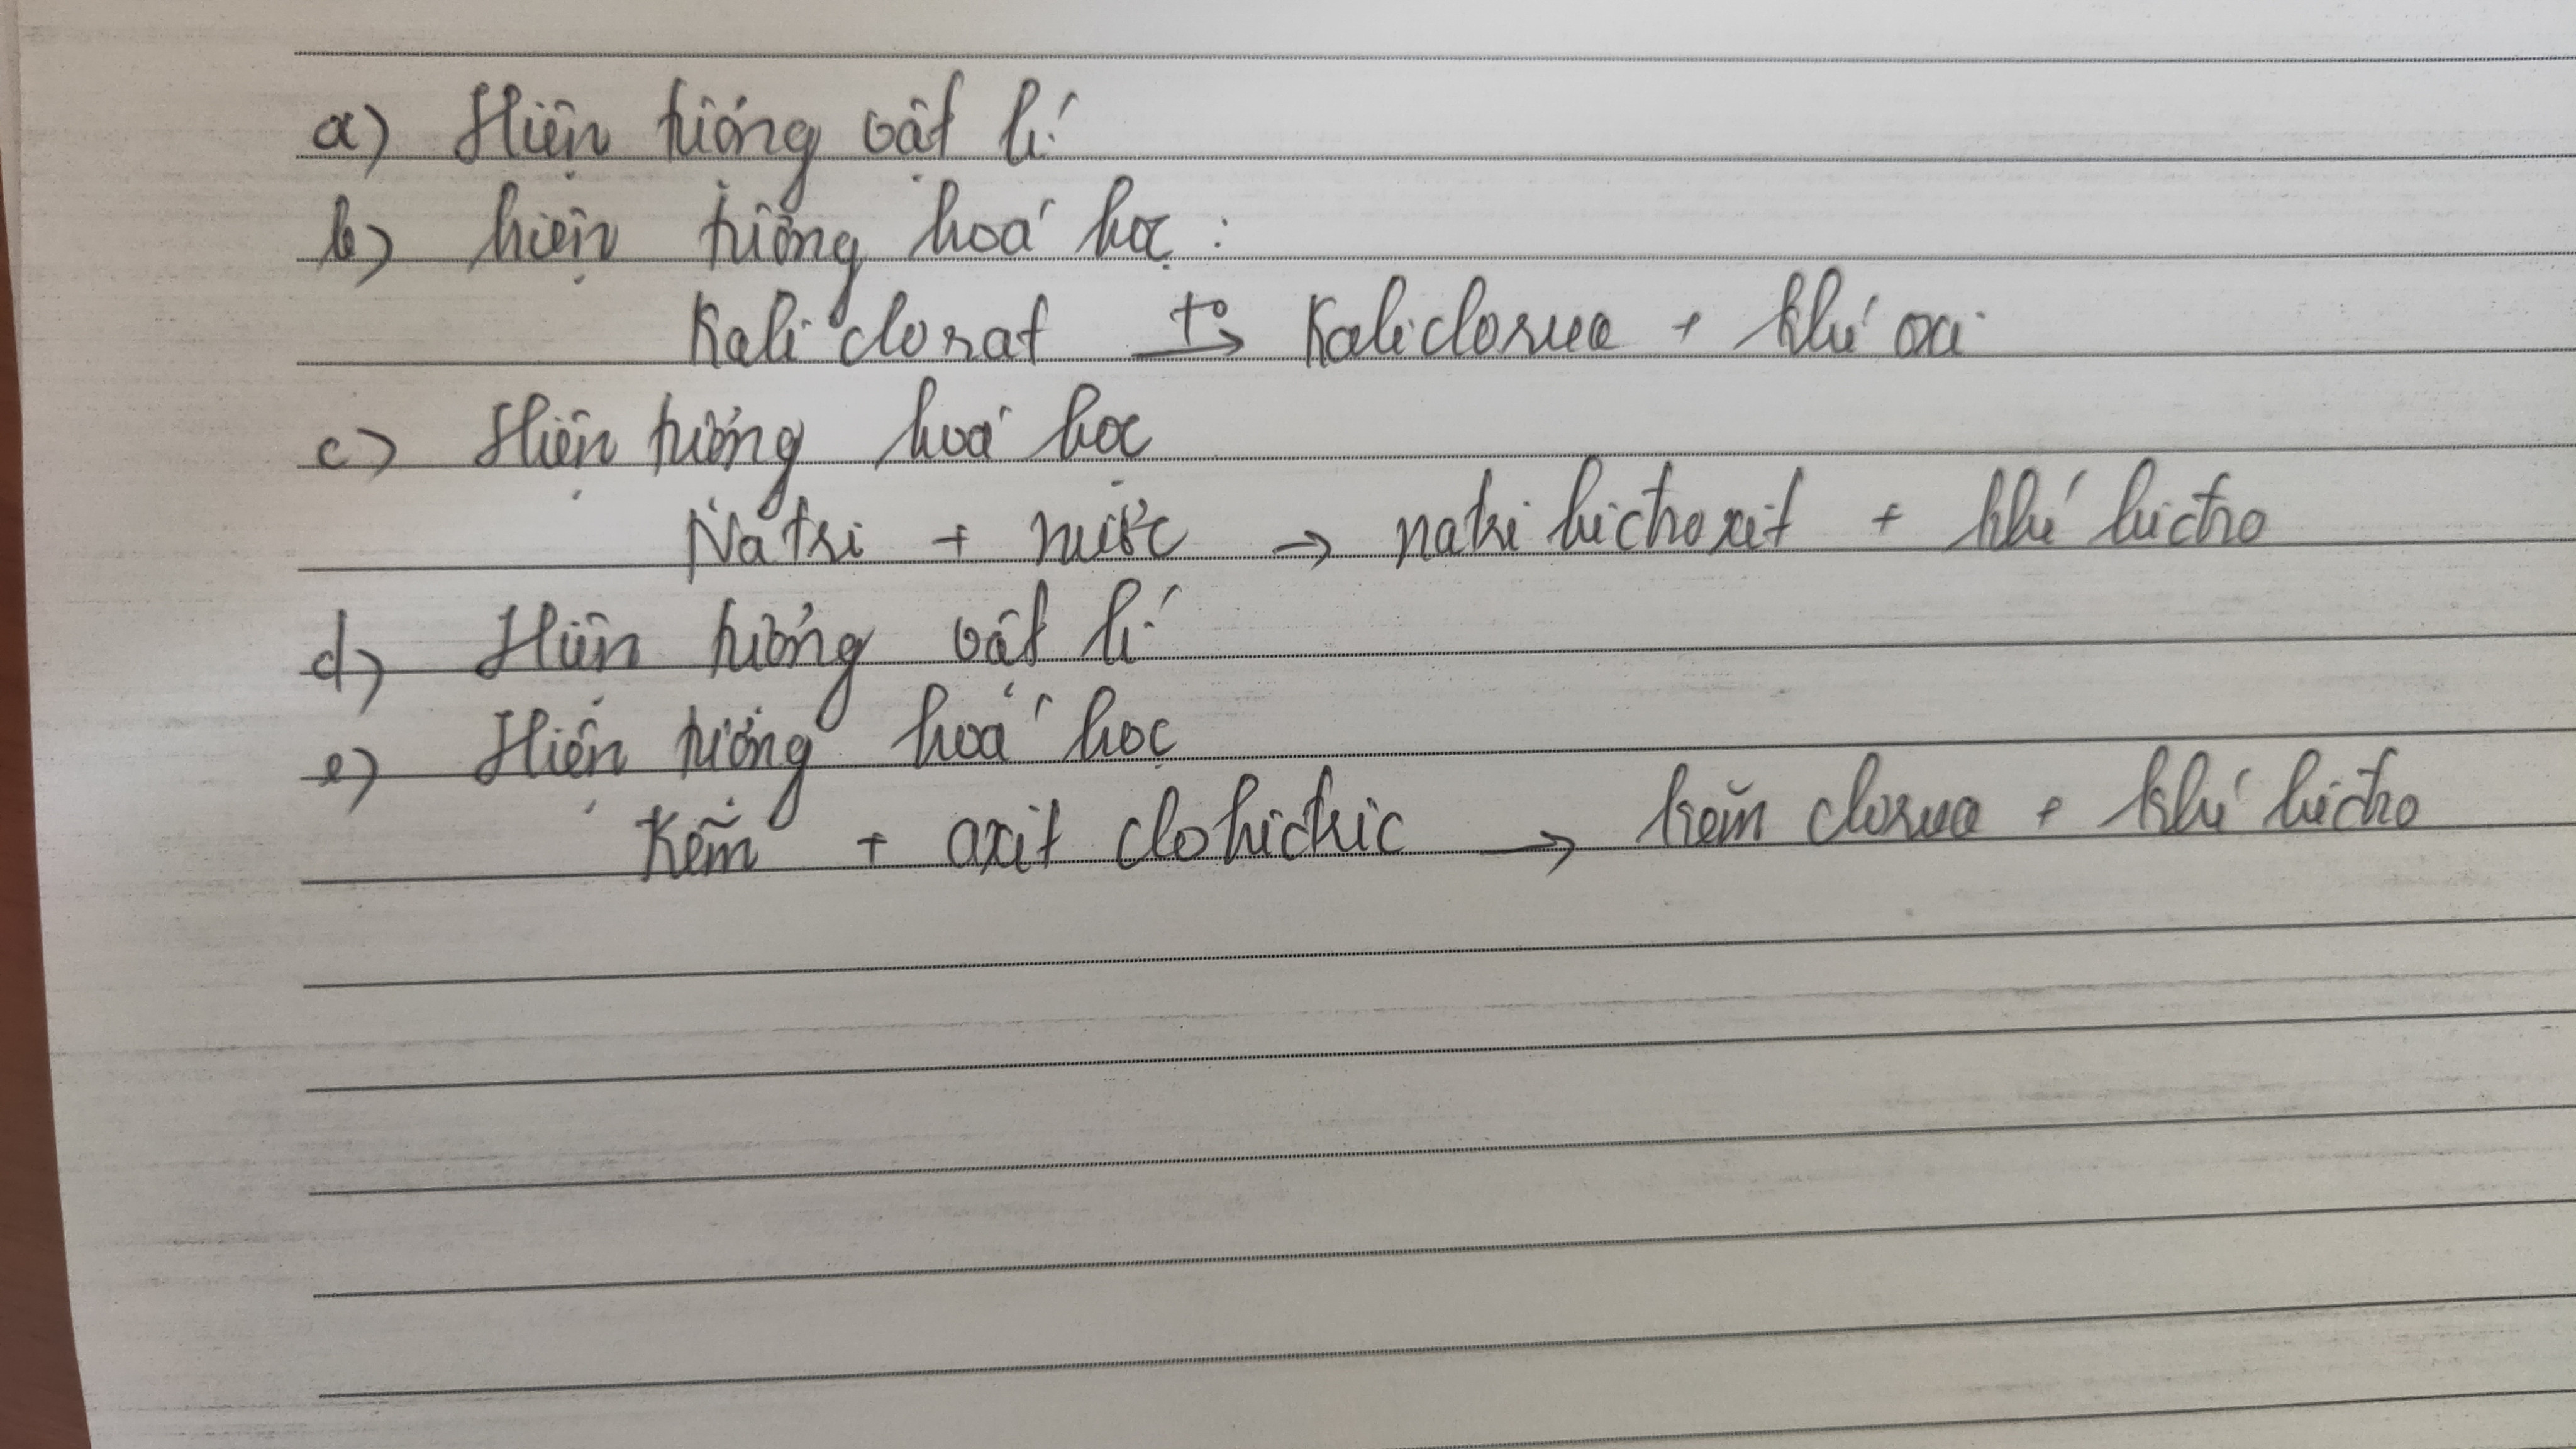 a) Hiện tượng vật lí
b) hiện tượng hoá học :
Kali clorat t° → Kaliclorua + khí oxi
c) Hiện tượng hoá học
Natri + nước → natri hiđroxit + khí hiđro
d) Hiện tượng vật lí
e) Hiện tượng hoá học
Kẽm + axit clohiđric → kẽm clorua + khí hiđro